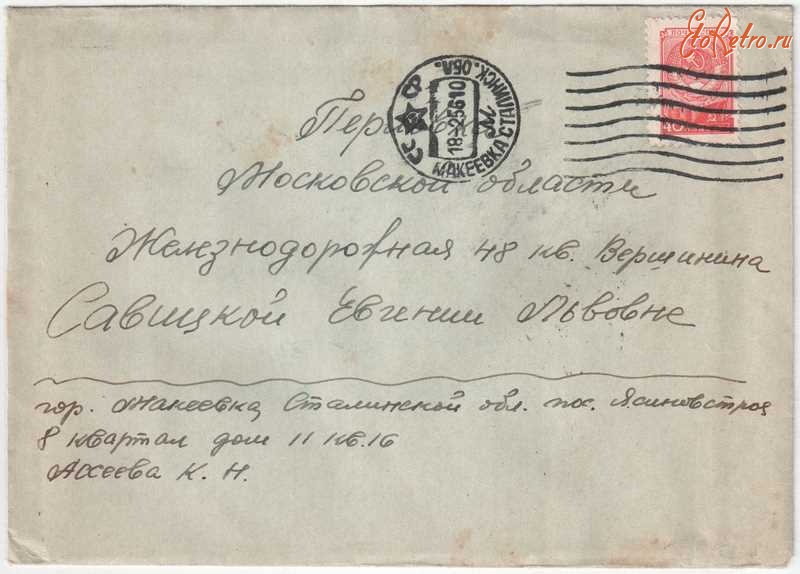 EtoRetro.ru
ПОЧТА
40
СССР
МАКЕЕВКА СТАЛИНСК. ОБЛ.
18-25610
Перловка
Московской области
Железнодорожная 48 кв. Вершинина
Савицкой Евгении Львовне
гор. Макеевка Сталинской обл. пос. Ясиновстроя
8 квартал дом 11 кв. 16
Ассеева К. Н.